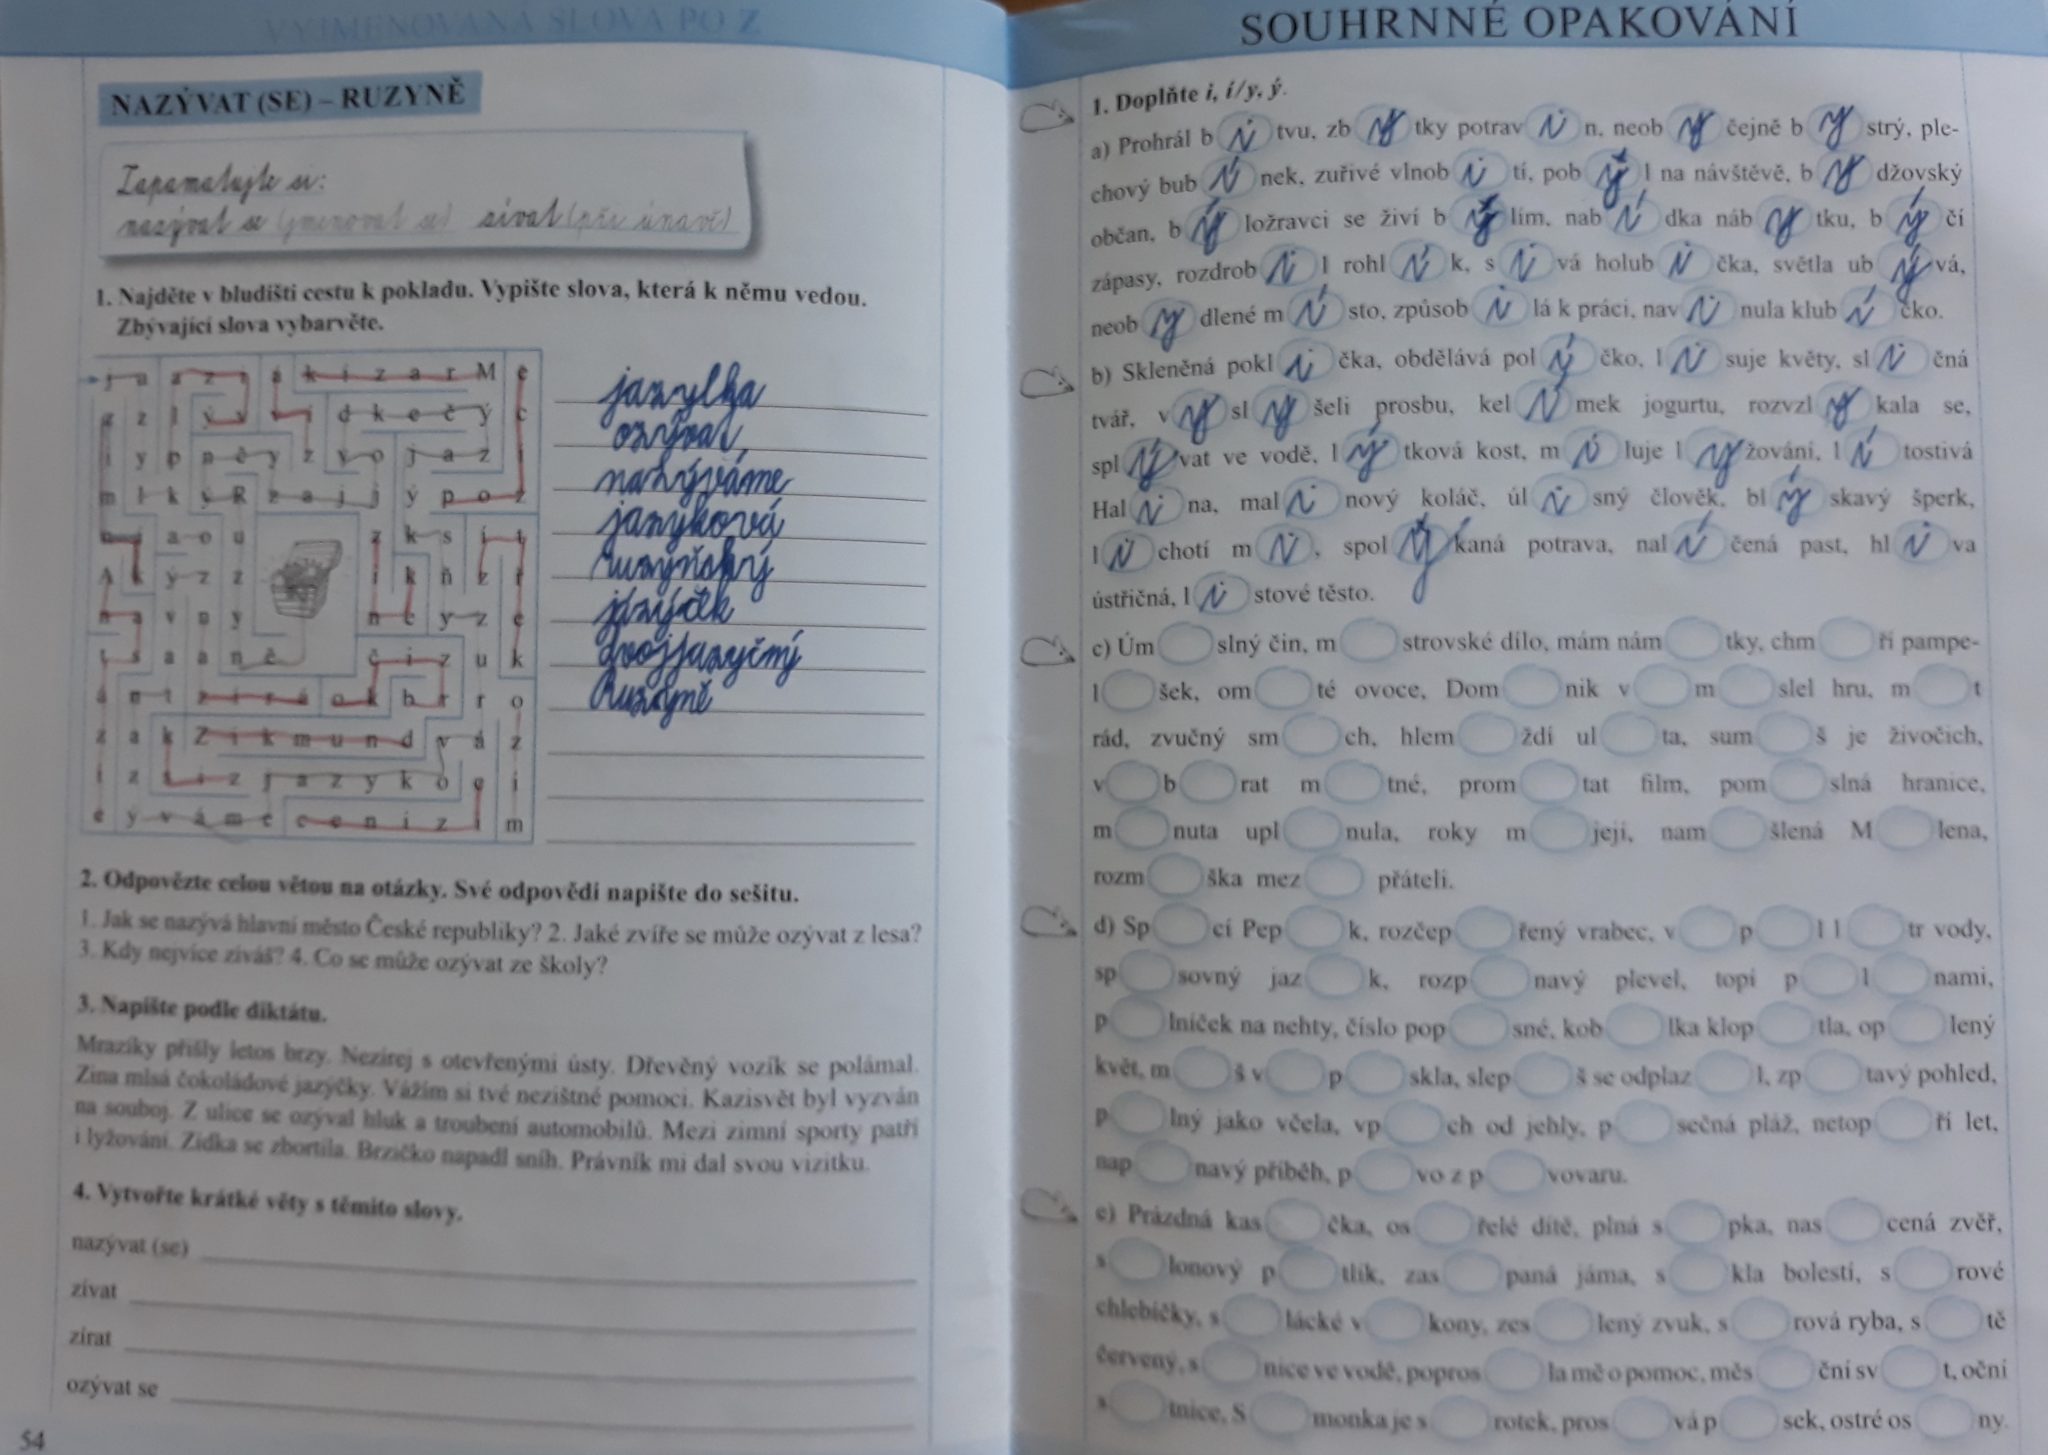 VYJMENOVANÁ SLOVA PO Z
NAZÝVAT (SE) – RUZYNĚ
Zapamatujte si:
nazývat se (jmenovat se) zívat (při únavě)
1. Najděte v bludišti cestu k pokladu. Vypište slova, která k němu vedou.
Zbývající slova vybarvěte.
jazylka
ozývat,
nazýváme
jazyková
Ruzyňský
jazýček
dvojjazyčný
Ruzyně
2. Odpovězte celou větou na otázky. Své odpovědi napište do sešitu.
1. Jak se nazývá hlavní město České republiky? 2. Jaké zvíře se může ozývat z lesa?
3. Kdy nejvíce zíváš? 4. Co se může ozývat ze školy?
3. Napište podle diktátu.
Mrazíky přišly letos brzy. Nezírej s otevřenými ústy. Dřevěný vozík se polámal.
Zina mlsá čokoládové jazýčky. Vážím si tvé nezištné pomoci. Kazisvět byl vyzván
na souboj. Z ulice se ozýval hluk a troubení automobilů. Mezi zimní sporty patří
i lyžování. Zídka se zbortila. Brzičko napadl sníh. Právník mi dal svou vizitku.
4. Vytvořte krátké věty s těmito slovy.
nazývat (se)
zívat
zírat
ozývat se
54
SOUHRNNÉ OPAKOVÁNÍ
1. Doplňte i, í/y, ý.
a) Prohrál b i tvu, zb y tky potrav i n, neob y čejně b y strý, ple-
chový bub í nek, zuřivé vlnob i tí, pob ý l na návštěvě, b y džovský
občan, b ý ložravci se živí b ý lím, nab í dka náb y tku, b ý čí
zápasy, rozdrob i l rohl í k, s i vá holub i čka, světla ub ý vá,
neob y dlené m í sto, způsob i lá k práci, nav i nula klub í čko.
b) Skleněná pokl i čka, obdělává pol ý čko, l i suje květy, sl i čná
tvář, v y sl y šeli prosbu, kel í mek jogurtu, rozvzl y kala se,
spl ý vat ve vodě, l ý tková kost, m i luje l y žování, l í tostivá
Hal i na, mal i nový koláč, úl i sný člověk, bl ý skavý šperk,
l i chotí m i , spol ý kaná potrava, nal í čená past, hl i va
ústřičná, l i stové těsto.
c) Úm slný čin, m strovské dílo, mám nám tky, chm ří pampe-
l šek, om té ovoce, Dom nik v m slel hru, m t
rád, zvučný sm ch, hlem ždí ul ta, sum š je živočich,
v b rat m tné, prom tat film, pom slná hranice,
m nuta upl nula, roky m její, nam šlená M lena,
rozm ška mez přáteli.
d) Sp cí Pep k, rozčep řený vrabec, v p l l tr vody,
sp sovný jaz k, rozp navý plevel, topí p l nami,
p lníček na nehty, číslo pop sné, kob lka klop tla, op lený
květ, m š v p skla, slep š se odplaz l, zp tavý pohled,
p lný jako včela, vp ch od jehly, p sečná pláž, netop ří let,
nap navý příběh, p vo z p vovaru.
e) Prázdná kas čka, os řelé dítě, plná s pka, nas cená zvěř,
s lonový p tlík, zas paná jáma, s kla bolestí, s rové
chlebíčky, s lácké v kony, zes lený zvuk, s rová ryba, s tě
červený, s nice ve vodě, popros la mě o pomoc, měs ční sv t, oční
s tnice, S monka je s rotek, pros vá p sek, ostré os ny.